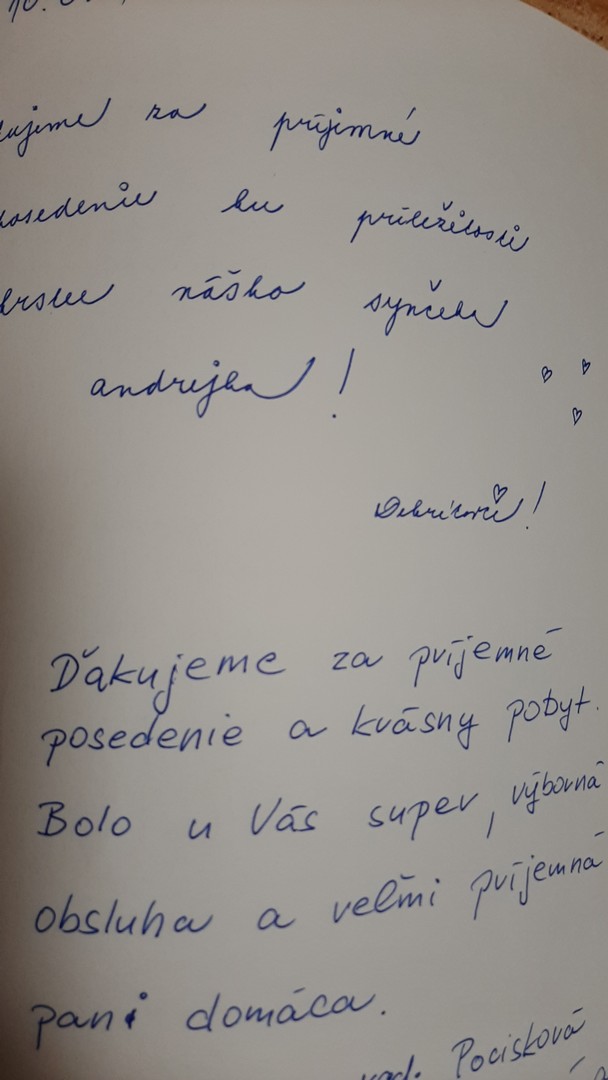 za príjmné
posedenie ku príležitosti
krstu nášho synčeka
andrejka!
Ďakujeme za príjemné
posedenie a kvásny pobyt.
Bolo u Vás super, výborná
obsluha a veľmi príjemná
pani domáca.
Pocisková